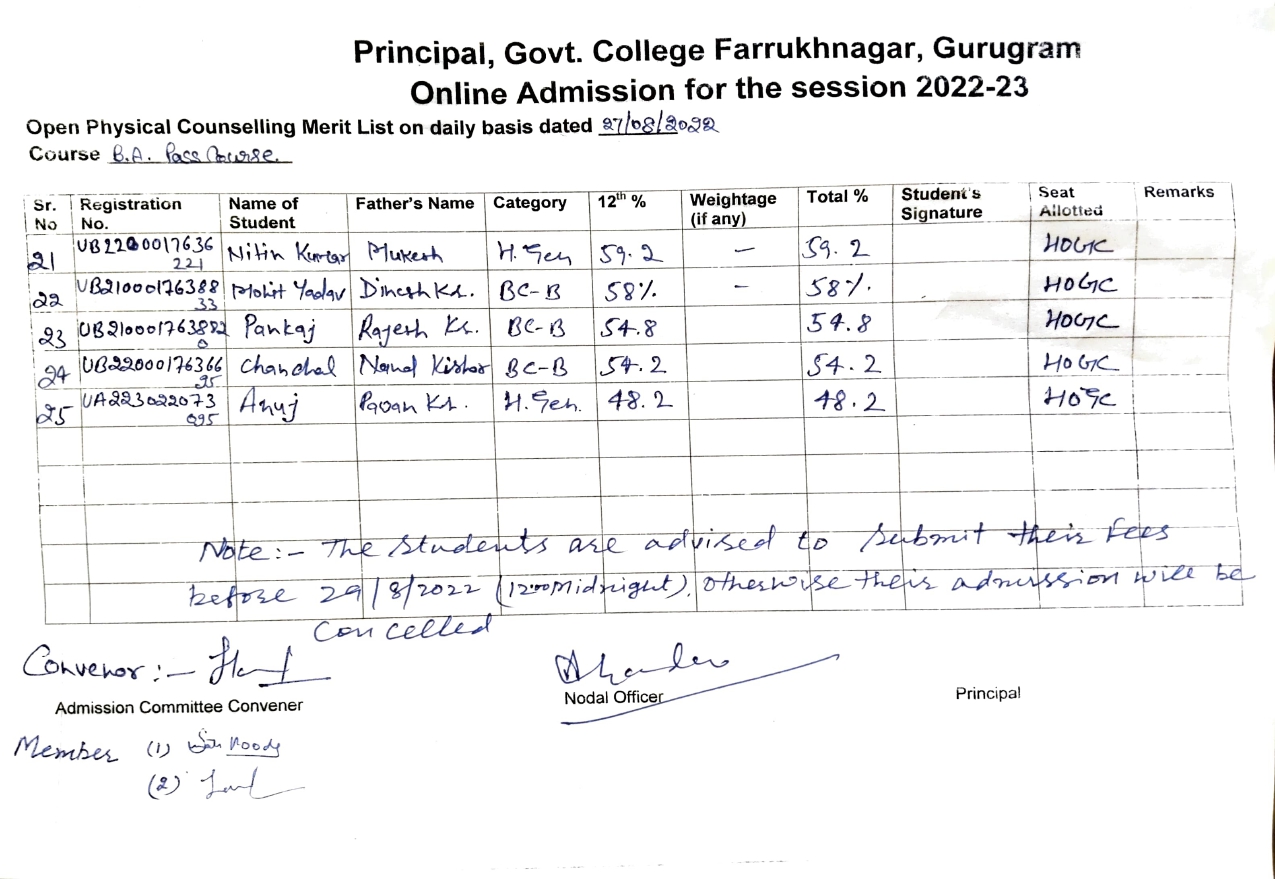 Principal, Govt. College Farrukhnagar, Gurugram
Online Admission for the session 2022-23
Open Physical Counselling Merit List on daily basis dated 27/08/2022
Course B.A. Pass Course.
Sr. No Registration No. Name of Student Father's Name Category 12th % Weightage (if any) Total % Student's Signature Seat Allotted Remarks
21 UB2200017636221 Nitin Kumar Mukesh H.Gen 59.2 – 59.2 HOGC
22 UB2100017638833 Mohit Yadav Dinesh Kr. BC-B 58% – 58% HOGC
23 UB21000176388 Pankaj Rajesh Kr. BC-B 54.8 54.8 HOGC
24 UB2200017636695 Chanchal Nand Kishor BC-B 54.2 54.2 HOGC
25 UA223022073095 Anuj Pavan Kr. H.Gen. 48.2 48.2 HOGC
Note:- The Students are advised to Submit their Fees
before 29/8/2022 (12:00Midnight), otherwise their admission will be
Cancelled
Convenor:-
Admission Committee Convener
Nodal Officer
Principal
Member (1)
(2)